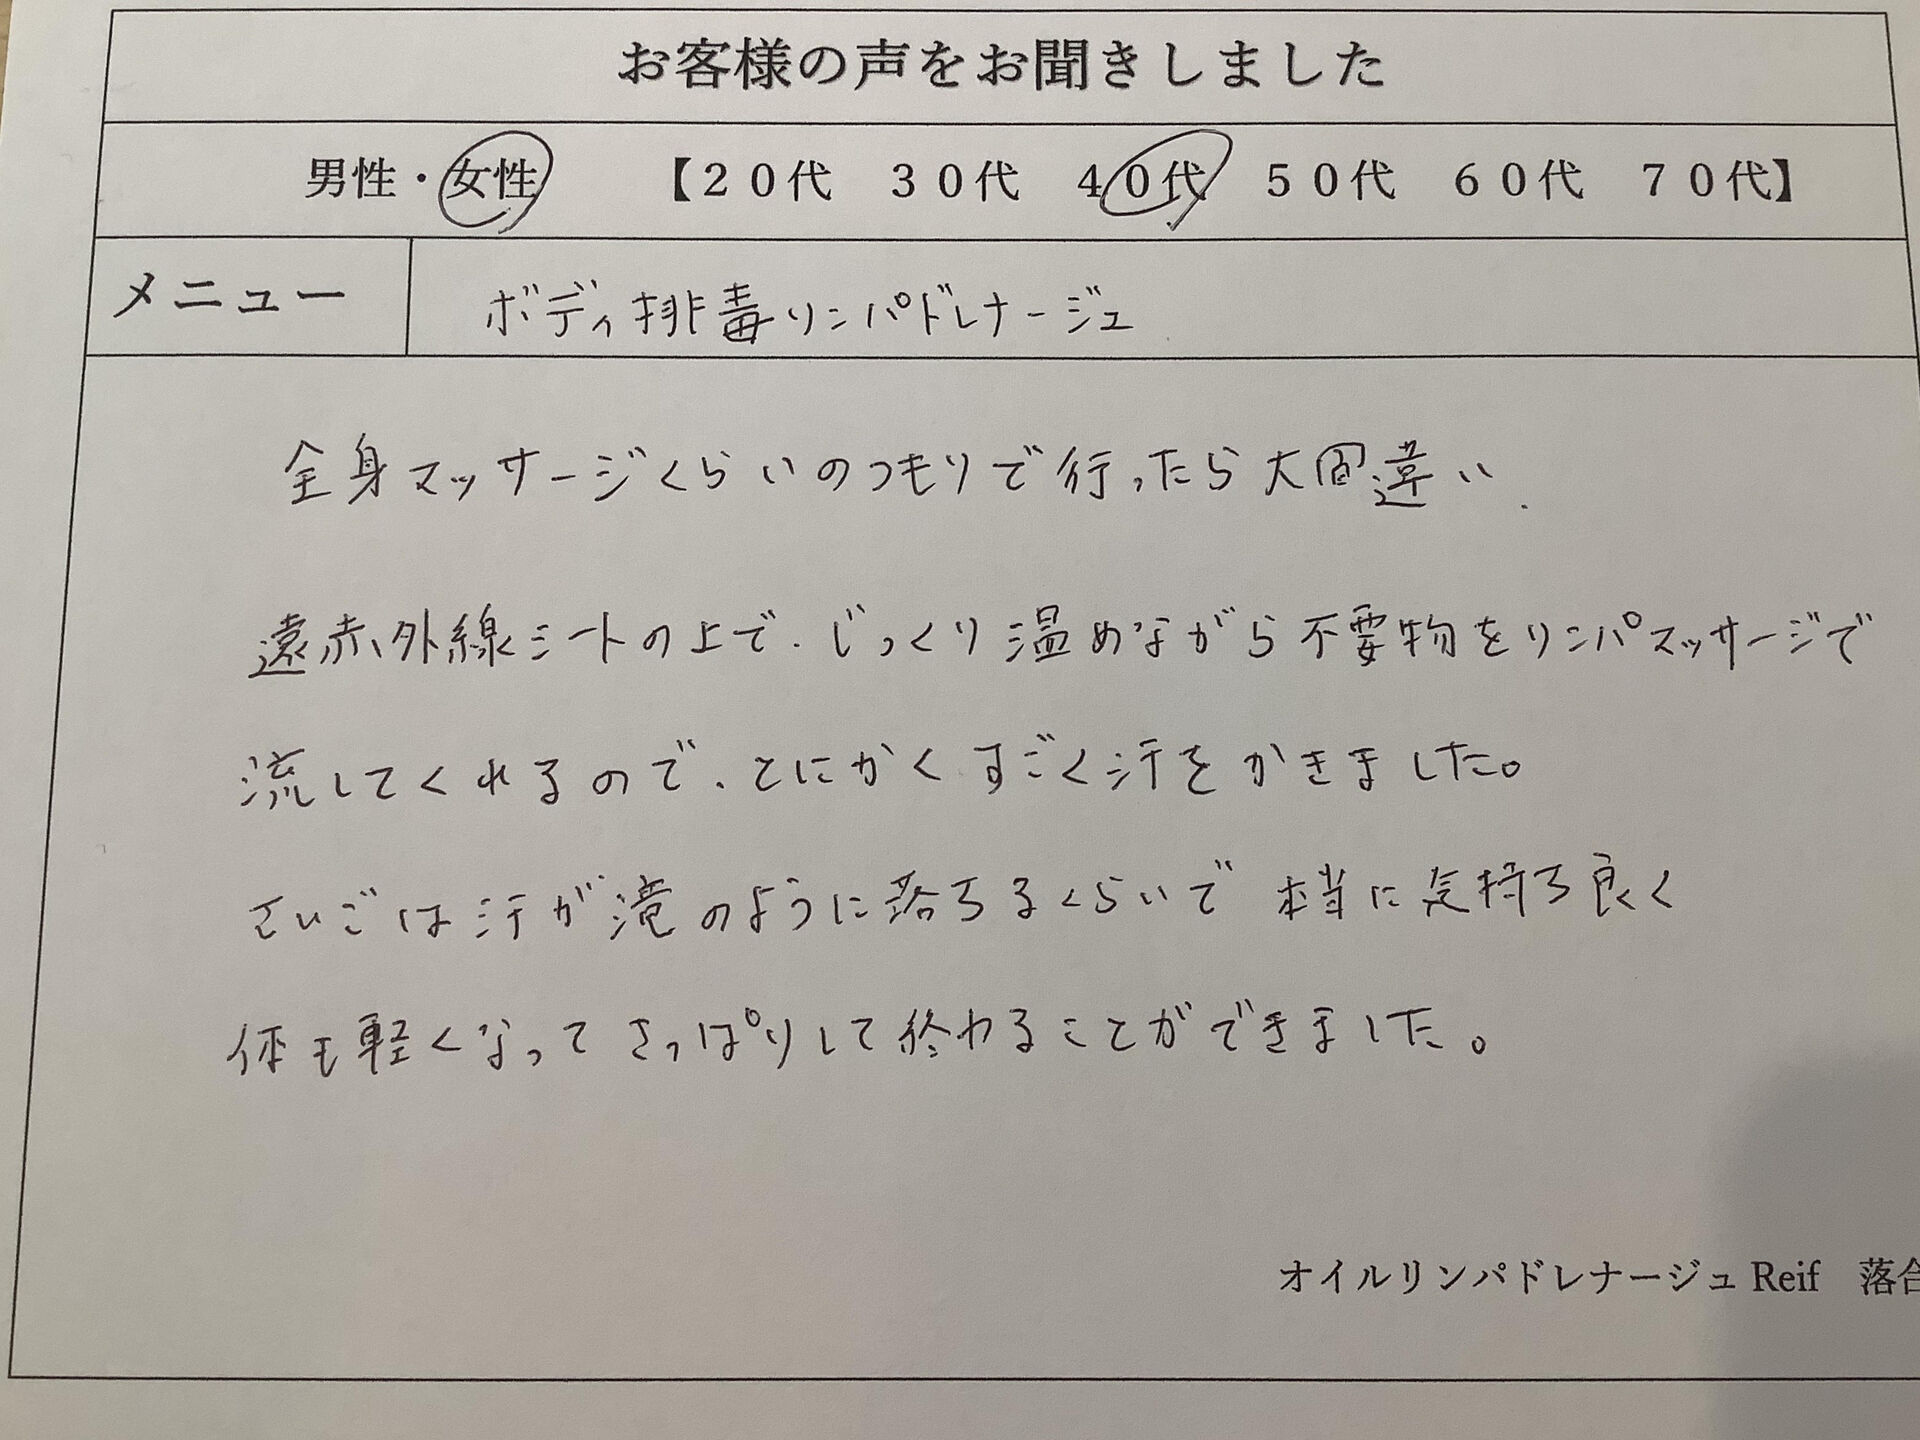 お客様の声をお聞きしました
男性・女性 【20代 30代 40代 50代 60代 70代】
メニュー ボディ排毒リンパドレナージュ
全身マッサージくらいのつもりで行ったら大間違い.
遠赤外線シートの上で、じっくり温めながら不要物をリンパマッサージで
流してくれるので、とにかくすごく汗をかきました。
さいごは汗が滝のように落ちるくらいで本当に気持ち良く
体も軽くなってさっぱりして終わることができました。
オイルリンパドレナージュ Reif 落合